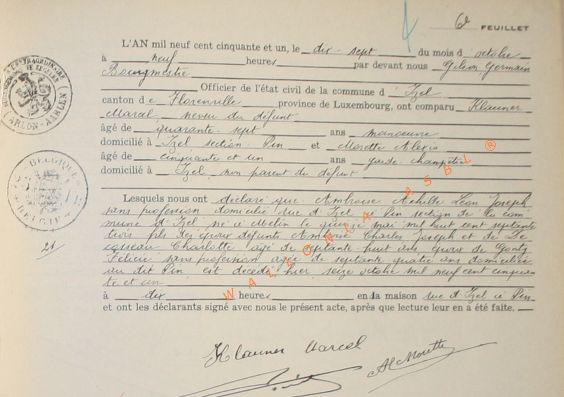 6e FEUILLET
L'AN mil neuf cent cinquante et un, le dix-sept du mois d'octobre
à neuf heures par devant nous Gelson Germain
Bourgmestre
Officier de l'état civil de la commune d'Izel
canton de Florenville province de Luxembourg, ont comparu Klauner
Marcel, neveu du défunt
âgé de quarante-sept ans manœuvre
domicilié à Izel section Pin et Marotte Alexis
âgé de cinquante et un ans garde-champêtre
domicilié à Izel non parent du défunt
Lesquels nous ont déclaré que Ambroise Achille Léon Joseph
sans profession domicilié rue d'Izel à Pin section de la com
mune d'Izel né à Mellin le quinze mai mil huit cent septante
trois fils des époux défunts Ambroise Charles Joseph et de
Charlotte agé de septante huit ans époux de
Félicie sans profession agée de septante quatre ans domiciliée
au dit Pin est décédé hier seize octobre mil neuf cent cinquan
te et un
à dix heures en la maison rue d'Izel à Pin
et ont les déclarants signé avec nous le présent acte, après que lecture leur en a été faite.
Klauner Marcel
WALLONIA ASBL ®
BELGIQUE
BELGIË